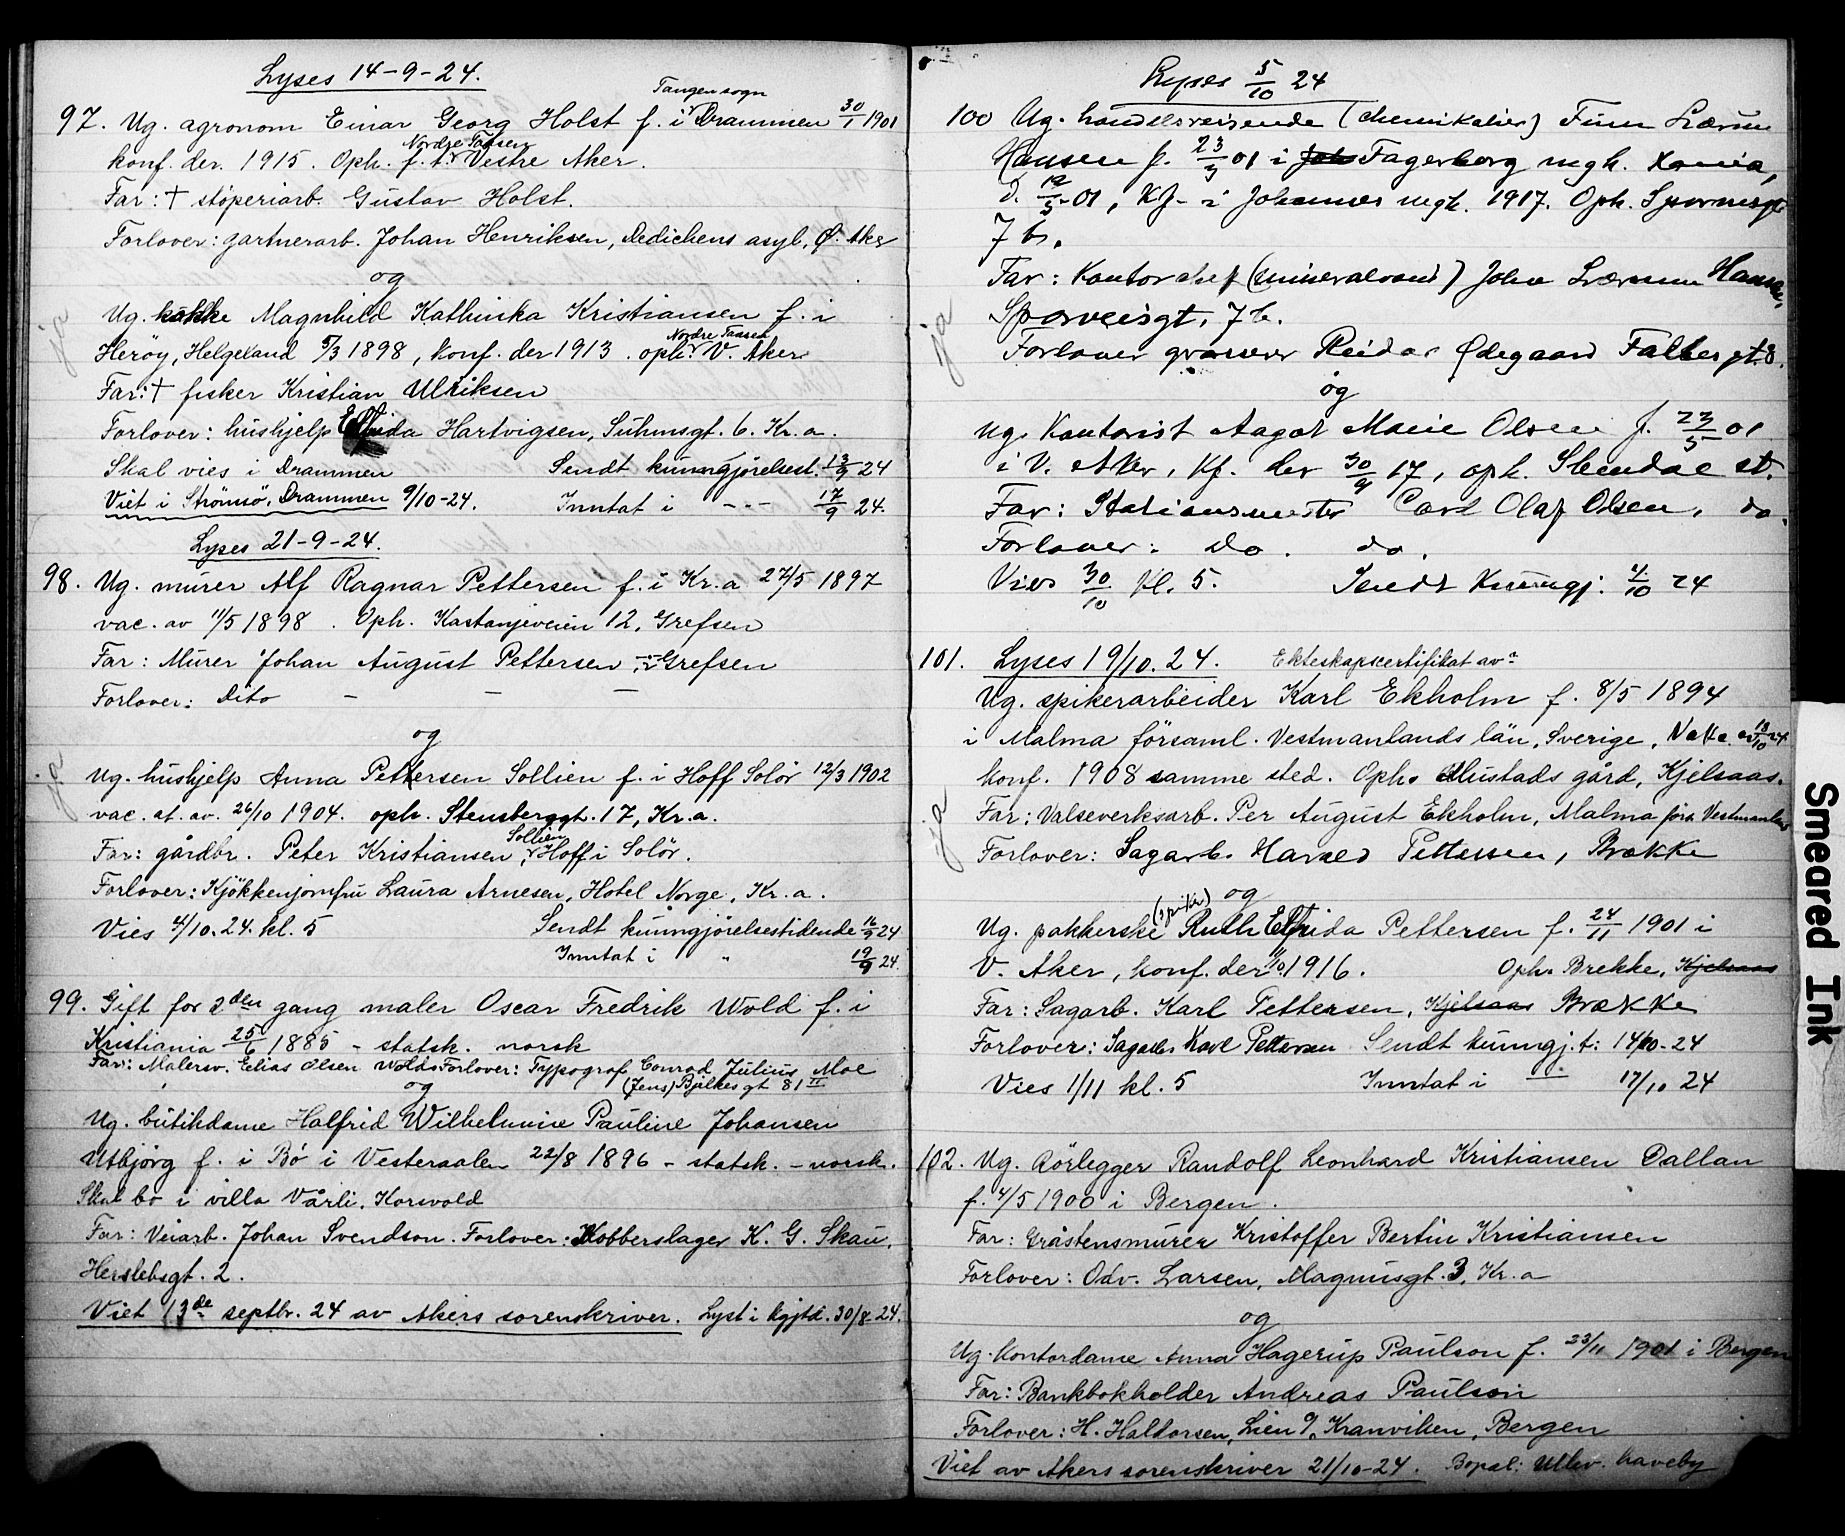 Lyses 14-9-24.
Tangen sogn
97. Ug. agronom Einar Georg Holst f. i Drammen 30/1 1901
Nordre Taasen
konf. der. 1915. Oph. f. t. Vestre Aker.
Far: † støperiarb. Gustav Holst.
Forlover: gartnerarb. Johan Henriksen, Dedichens asyl, Ø. Aker
og
Ug. kokke Magnhild Kathinka Kristiansen f. i
Nordre Taasen
Herøy, Helgeland 5/3 1898, konf. der 1913. oph. V. Aker
Far: † fisker Kristian Ulriksen
Forlover: hushjelp Elfrida Hartvigsen, Suhmsgt. 6. Kr.a.
Skal vies i Drammen Sendt kunngjørelsest. 13/9 24
Viet i Strømsø, Drammen 9/10-24. Inntat i - - - 17/9 24.
ja
Lyses 21-9-24.
98. Ug. murer Alf Ragnar Pettersen f. i Kr.a 27/5 1897
vac. av 11/5 1898. Oph. Kastanjeveien 12, Grefsen
Far: Murer Johan August Pettersen, Grefsen
Forlover: Dito - - -
og
Ug. hushjelp Anna Pettersen Sollien f. i Hoff Solør 12/3 1902
vac. at. av. 26/10 1904. oph. Stensberggt. 17, Kr.a.
Sollien
Far: gårdbr. Peter Kristiansen Hoff i Solør.
Forlover: Kjøkkenjomfru Laura Arnesen, Hotel Norge, Kr.a.
Vies 4/10.24. kl. 5 Sendt kunngjørelsestidende 16/9 24
Inntat i " 19/9 24.
ja
99. Gift for 2den gang maler Oscar Fredrik Wold f. i
Kristiania 25/6 1885 - statsk. norsk
Far: Malersv. Elias Olsen Wold Forlover: Typograf Conrad Julius Moe
og (Jens) Bjelkesgt 81 II
Ug. butikdame Halfrid Wilhelmine Pauline Johansen
Utbjörg f. i Bø i Vesteraalen 22/8 1896 - statsk. - norsk.
Skal bo i villa Vårli, Korsvold
Far: Veiarb. Johan Svendson. Forlover: Kobberslager K. G. Skau,
Herslebsgt. 2.
Viet 13de septbr. 24 av Akers sorenskriver. Lyst i Kgjtd. 30/8-24.
Lyses 5/10 24
100 Ug. handelsreisende (chemikalier) Finn Lærum
Hansen f. 23/3 01 i Fagerborg mgh. Xania,
d. 12/5 01, Kf. i Johannes mgh. 1917. Oph. Sporveisgt
7 b.
Far: Kontorchef (mineralvand) John Lærum Hansen,
Sporveisgt. 7 b.
Forlover grosserer Reidar Ødegaard Falbesgt. 8.
og
Ug. Kontorist Aagot Marie Olsen f. 23/5 01
i V. Aker, Kf. der 30/9 17, oph. Skindal st.
Far: Stationsmester Carl Olaf Olsen, do.
Forlover: do. do.
Vies 30/10 kl. 5. Sendt Kunngj: 4/10 24
ja
101. Lyses 19/10.24. Ekteskapscertifikat av
Ug. spikerarbeider Karl Ekholm f. 8/5 1894
i Malma församl. Vestmanlands län, Sverige, 13/10 24
konf. 1908 samme sted. Oph. Mustads gård, Kjelsaas.
Far: Valseverksarb. Per August Ekholm, Malma förs. Vestmanland
Forlover: Sagarb. Harald Pettersen, Brække
og
(spiker)
Ug. pakkerske Ruth Elfrida Pettersen f. 24/11 1901 i
V. Aker, konf. der 1/10 1916. Oph. Brekke, Kjelsaas
Far: Sagarb. Karl Pettersen, Kjelsaas Brække
Forlover: Sagarb. Karl Pettersen Sendt kunngj.t: 14/10-24
Vies 1/11 kl. 5 Inntat i - " - 17/10 24
ja
102. Ug. Rörlegger Randolf Leonhard Kristiansen Dallan
f. 4/5 1900 i Bergen.
Far: Gråstensmurer Kristoffer Bertin Kristiansen
Forlover: Odv. Larsen, Magnusgt. 3, Kr.a
og
Ug. Kontordame Anna Hagerup Paulson f. 23/11 1901 i Bergen
Far: Bankbokholder Andreas Paulson
Forlover: H. Haldorsen, Lien 9, Kranviken, Bergen
Viet av Akers sorenskriver 21/10-24. Bopæl: Ullev. haveby
Smeared Ink